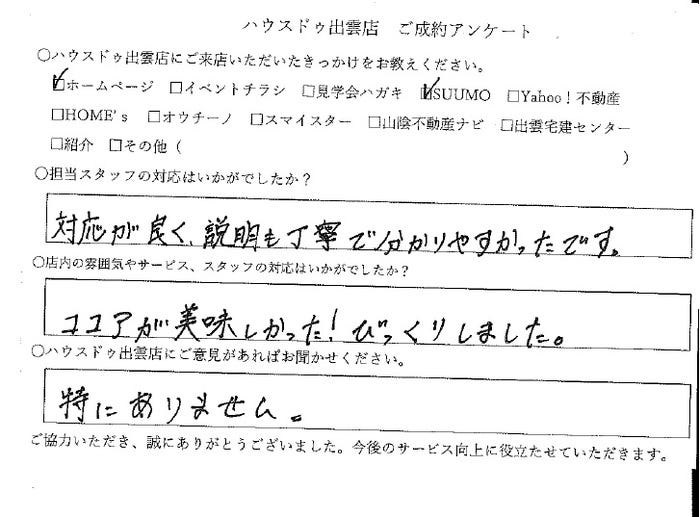 ハウスドゥ出雲店　ご成約アンケート
○ハウスドゥ出雲店にご来店いただいたきっかけをお教えください。
☑ホームページ　□イベントチラシ　□見学会ハガキ　☑SUUMO　□Yahoo！不動産
□HOME's　□オウチーノ　□スマイスター　□山陰不動産ナビ　□出雲宅建センター
□紹介　□その他（　　　　　　　　　　）
○担当スタッフの対応はいかがでしたか？
対応が良く、説明も丁寧で分かりやすかったです。
○店内の雰囲気やサービス、スタッフの対応はいかがでしたか？
ココアが美味しかった！びっくりしました。
○ハウスドゥ出雲店にご意見があればお聞かせください。
特にありません。
ご協力いただき、誠にありがとうございました。今後のサービス向上に役立たせていただきます。